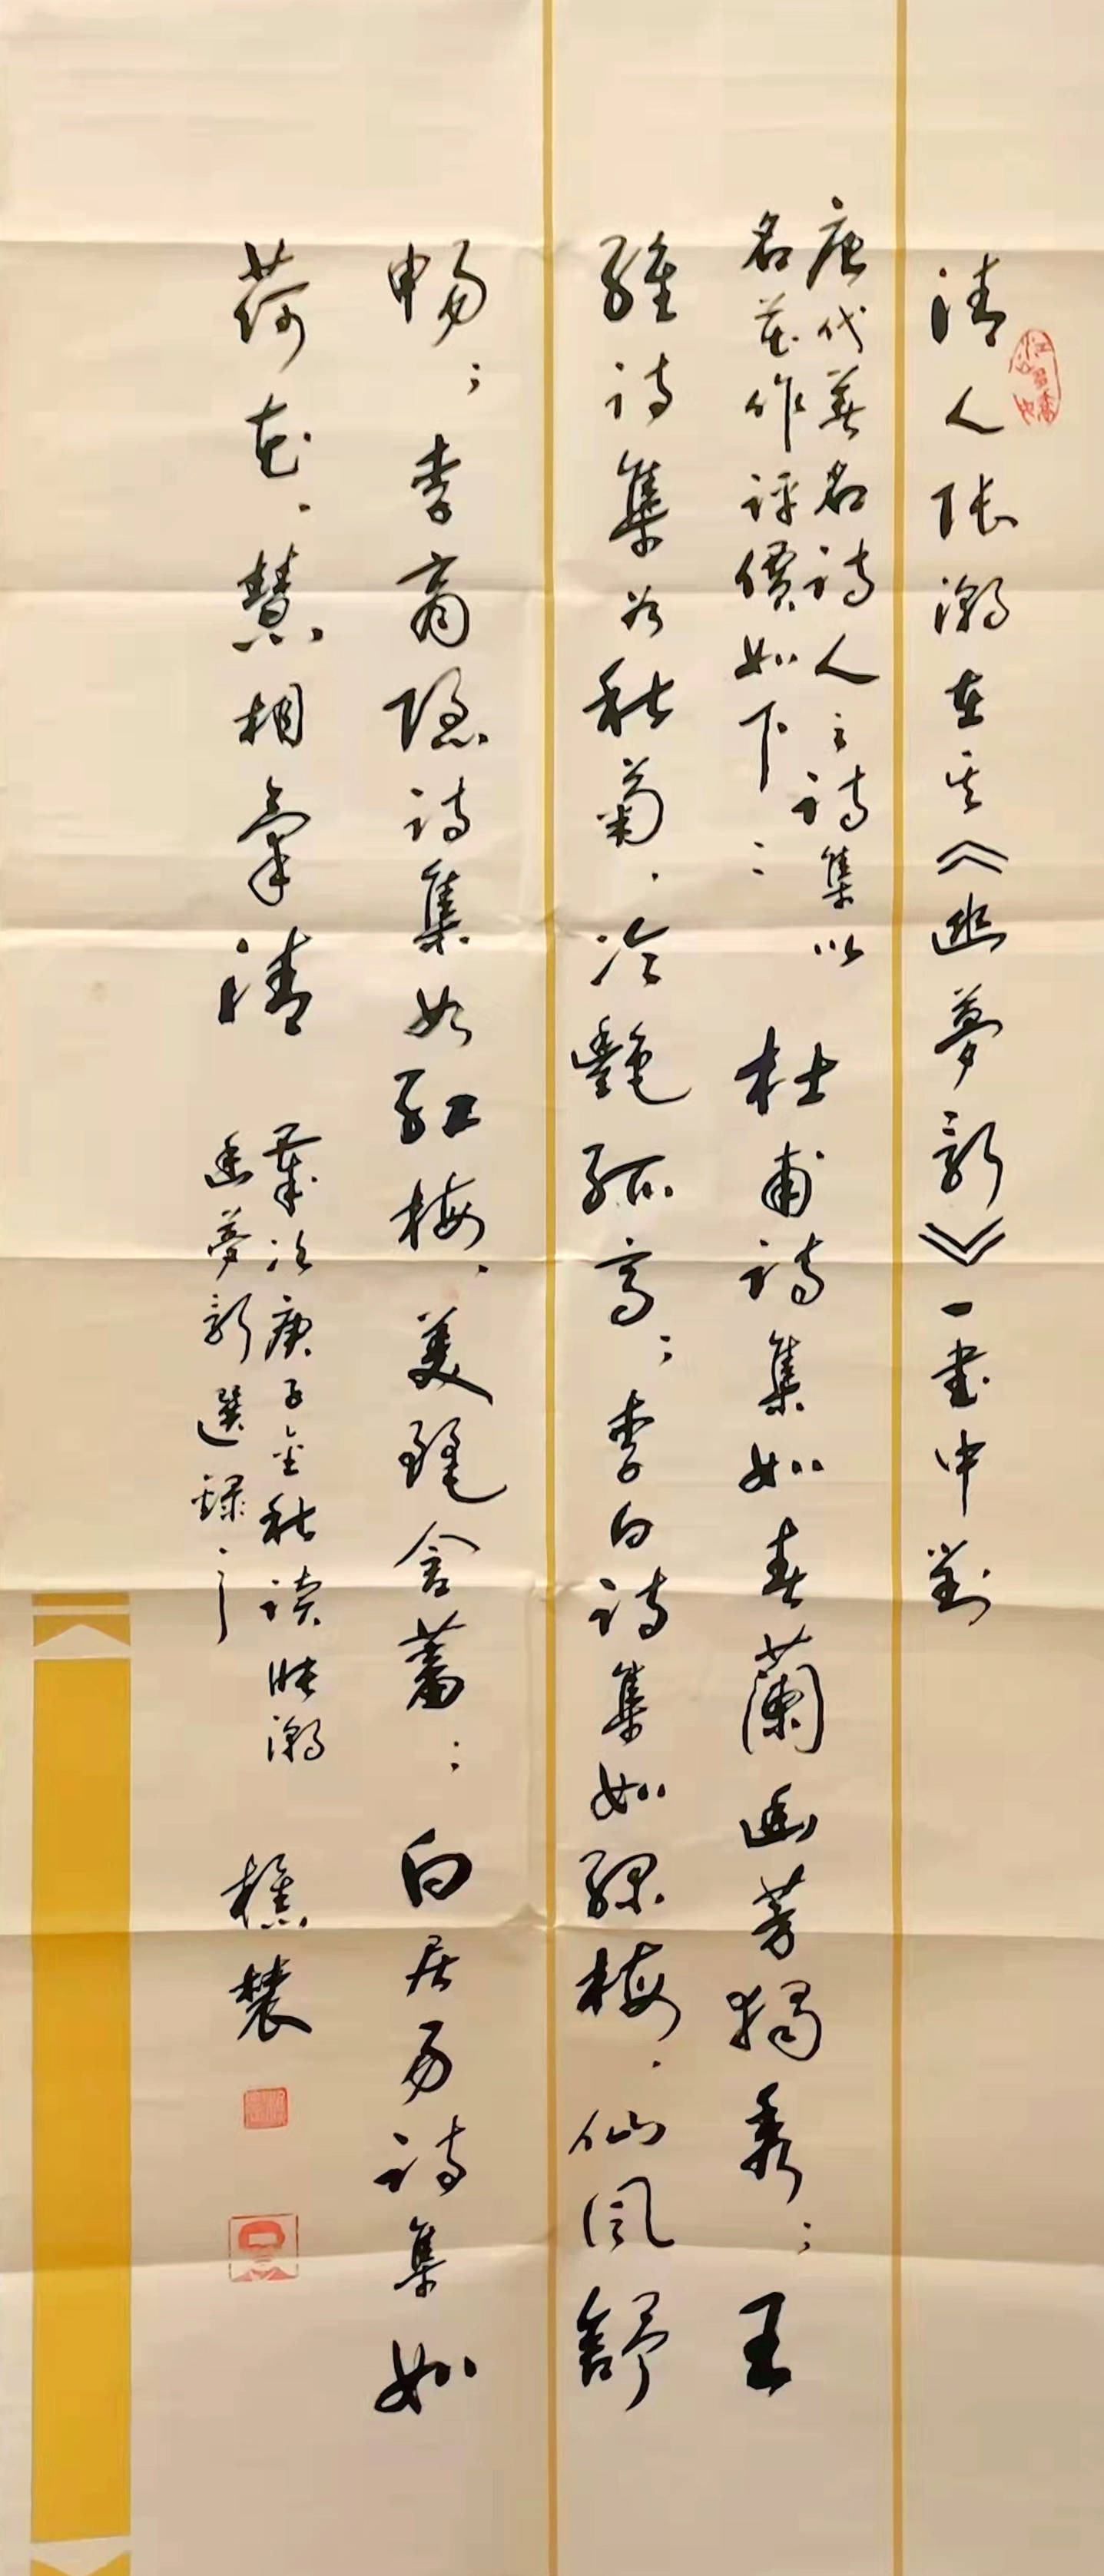 清人张潮在其《幽夢影》一書中對
唐代著名詩人之詩集以
名花作評價如下：
杜甫詩集如春蘭幽芳獨秀；王
維詩集如秋菊，冷艷孤高；李白詩集如绿梅，仙风舒
畅；李商隐詩集如红梅，美艷含蓄；白居易詩集如
荷花，慧相氣清
歲次庚子金秋读张潮
幽夢影選録之
樵